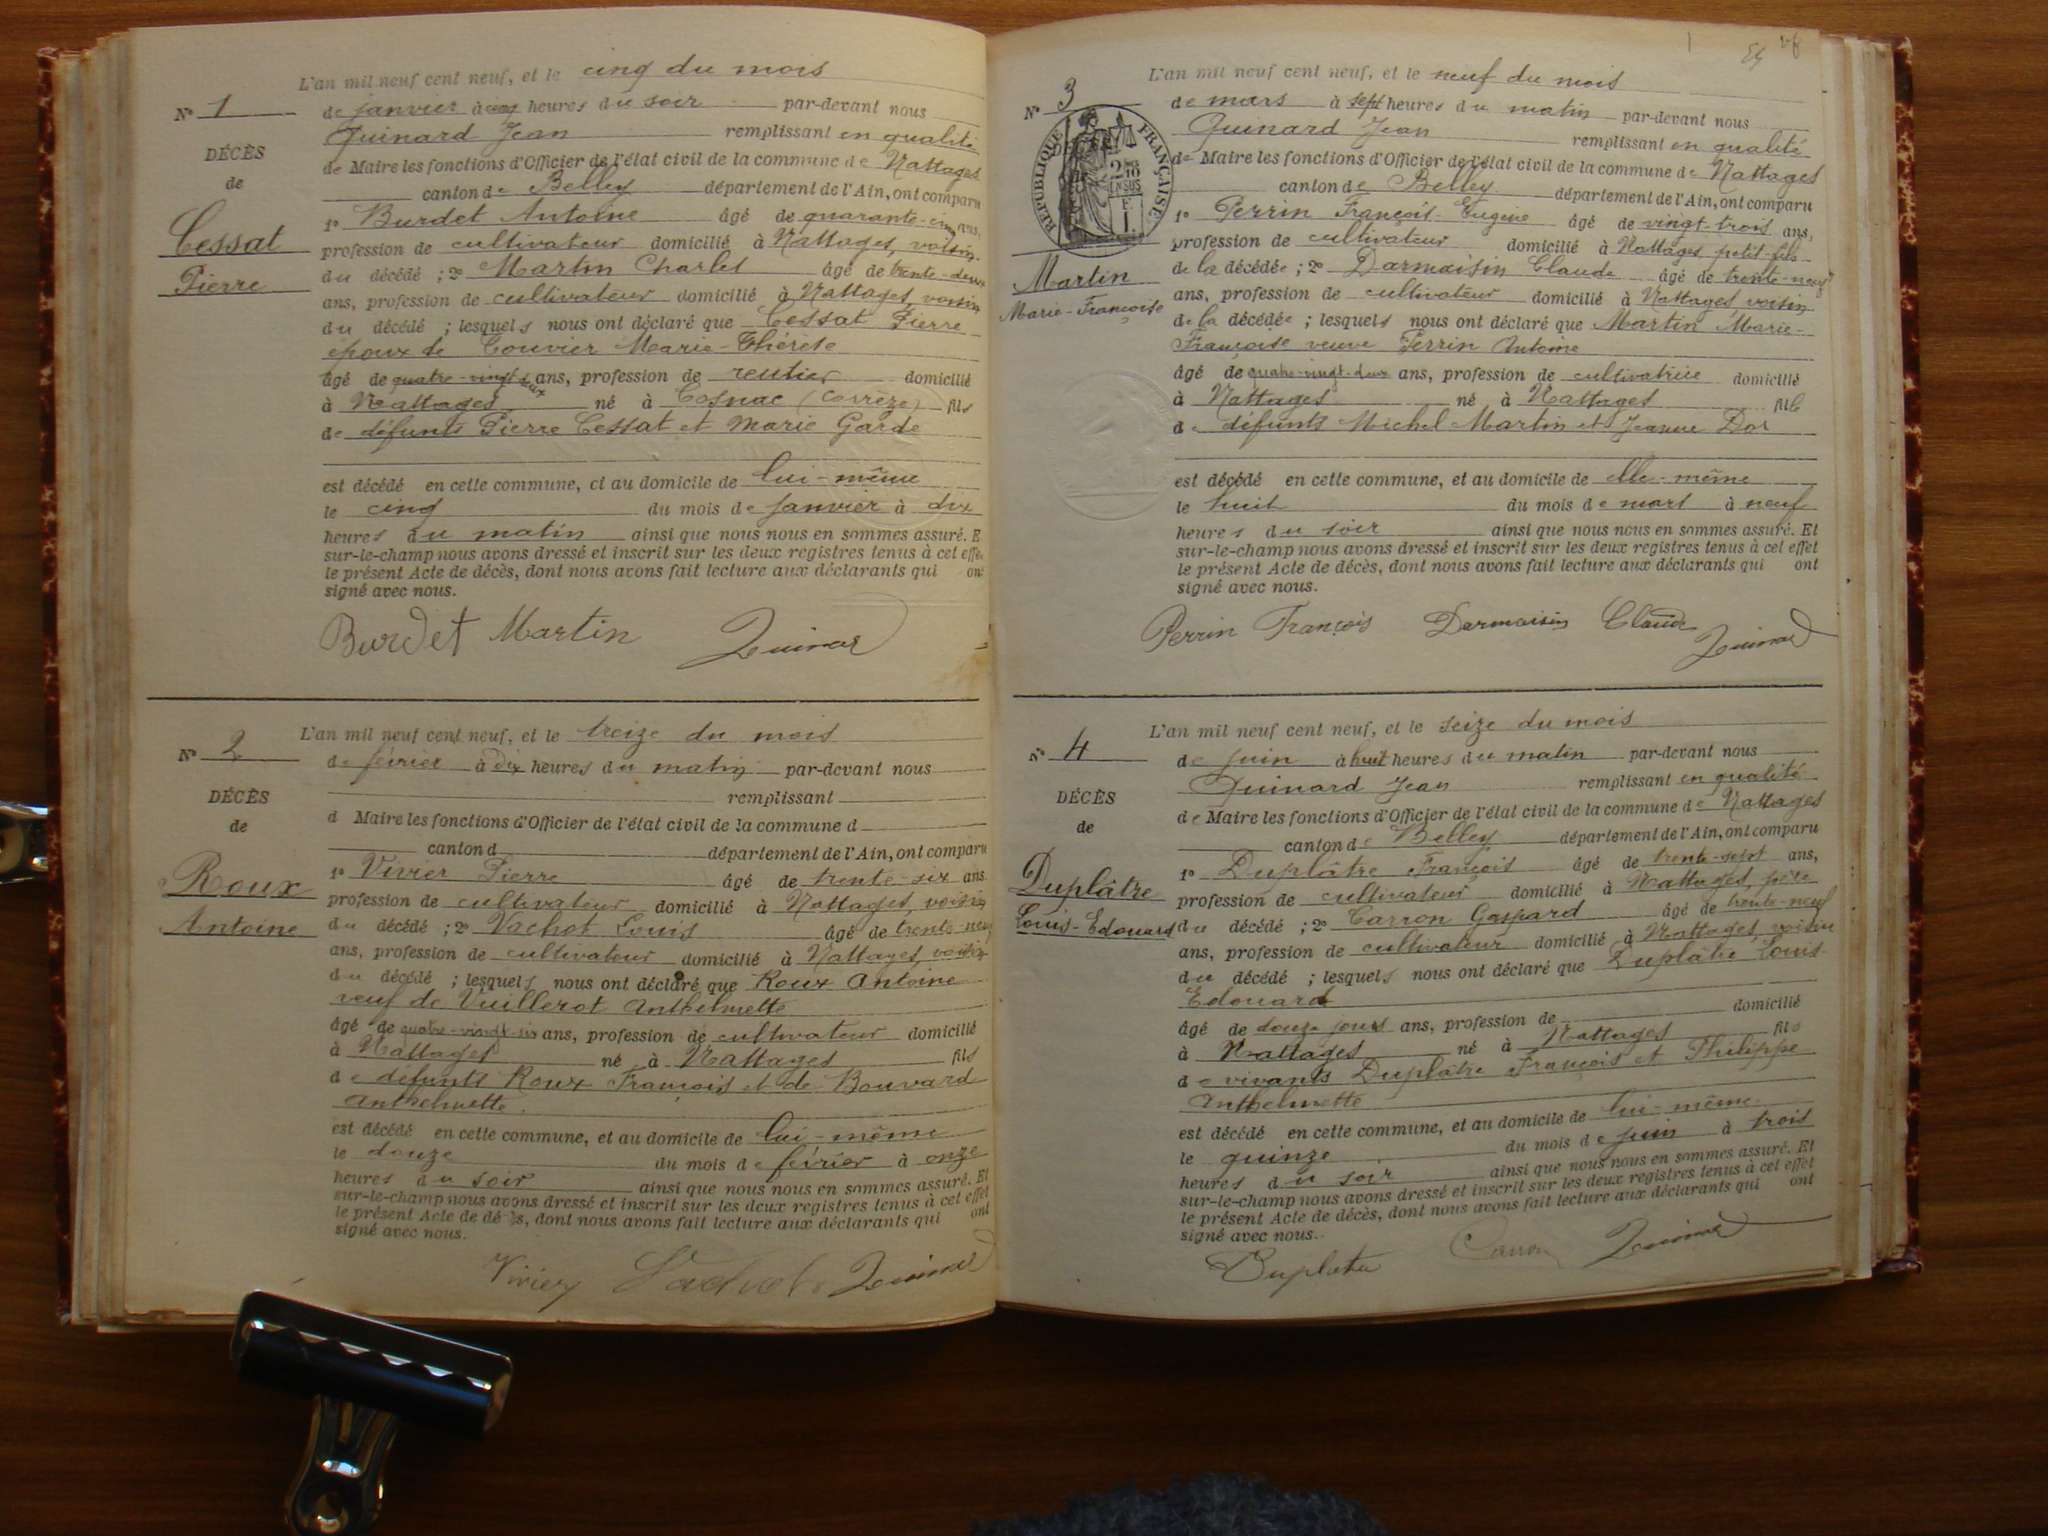 L'an mil neuf cent neuf, et le cinq du mois
N° 1
de janvier à cinq heures du soir par-devant nous
Quinard Jean remplissant en qualité
DÉCÈS
de Maire les fonctions d'Officier de l'état civil de la commune de Nattages
de
canton de Belley département de l'Ain, ont comparu
1° Burdet Antoine âgé de quarante-cinq ans,
Cessat
profession de cultivateur domicilié à Nattages, voisin
du décédé ; 2° Martin Charles âgé de trente-deux
Pierre
ans, profession de cultivateur domicilié à Nattages, voisin
du décédé ; lesquels nous ont déclaré que Cessat Pierre
époux de Couvier Marie-Thérèse
âgé de quatre-vingt-deux ans, profession de rentier domicilié
à Nattages né à Cosnac (Corrèze) fils
de défunts Pierre Cessat et Marie Garde
est décédé en cette commune, et au domicile de lui-même
le cinq du mois de janvier à dix
heures du matin ainsi que nous nous en sommes assuré. E
sur-le-champ nous avons dressé et inscrit sur les deux registres tenus à cet effe
le présent Acte de décès, dont nous avons fait lecture aux déclarants qui ont
signé avec nous.
Burdet Martin Quinard
L'an mil neuf cent neuf, et le treize du mois
N° 2
de février à dix heures du matin par-devant nous
remplissant
DÉCÈS
d Maire les fonctions d'Officier de l'état civil de la commune d
de
canton d département de l'Ain, ont comparu
1° Vivier Pierre âgé de trente-six ans
Roux
profession de cultivateur domicilié à Nattages, voisin
Antoine
du décédé ; 2° Vachot Louis âgé de trente-neuf
ans, profession de cultivateur domicilié à Nattages, voisin
du décédé ; lesquels nous ont déclaré que Roux Antoine
veuf de Vuillerot Anthelmette
âgé de quatre-vingt-six ans, profession de cultivateur domicilié
à Nattages né à Nattages fils
de défunts Roux François et de Bouvard
Anthelmette.
est décédé en cette commune, et au domicile de lui-même
le douze du mois de février à onze
heures du soir ainsi que nous nous en sommes assuré. Et
sur-le-champ nous avons dressé et inscrit sur les deux registres tenus à cet effet
le présent Acte de décès, dont nous avons fait lecture aux déclarants qui ont
signé avec nous.
Vivier Vachot Quinard
L'an mil neuf cent neuf, et le neuf du mois
N° 3
de mars à sept heures du matin par-devant nous
Quinard Jean remplissant en qualité
RÉPUBLIQUE FRANÇAISE
de Maire les fonctions d'Officier de l'état civil de la commune de Nattages
canton de Belley département de l'Ain, ont comparu
1° Perrin François-Eugène âgé de vingt-trois ans,
profession de cultivateur domicilié à Nattages petit-fils
Martin
de la décédée ; 2° Darmaisin Claude âgé de trente-neuf
Marie-Françoise
ans, profession de cultivateur domicilié à Nattages, voisin
de la décédée ; lesquels nous ont déclaré que Martin Marie-
Françoise veuve Perrin Antoine
âgé de quatre-vingt-deux ans, profession de cultivatrice domicilié
à Nattages né à Nattages fille
de défunts Michel Martin et Jeanne Dor
est décédé en cette commune, et au domicile de elle-même
le huit du mois de mars à neuf
heures du soir ainsi que nous nous en sommes assuré. Et
sur-le-champ nous avons dressé et inscrit sur les deux registres tenus à cet effet
le présent Acte de décès, dont nous avons fait lecture aux déclarants qui ont
signé avec nous.
Perrin François Darmaisin Claude Quinard
L'an mil neuf cent neuf, et le seize du mois
N° 4
de juin à huit heures du matin par-devant nous
Quinard Jean remplissant en qualité
DÉCÈS
de Maire les fonctions d'Officier de l'état civil de la commune de Nattages
de
canton de Belley département de l'Ain, ont comparu
1° Duplâtre François âgé de trente-sept ans,
Duplâtre
profession de cultivateur domicilié à Nattages, père
Louis-Edouard
du décédé ; 2° Carron Gaspard âgé de trente-neuf
ans, profession de cultivateur domicilié à Nattages, voisin
du décédé ; lesquels nous ont déclaré que Duplâtre Louis-
Edouard
âgé de douze jours ans, profession de domicilié
à Nattages né à Nattages fils
de vivants Duplâtre François et Philippe
Anthelmette
est décédé en cette commune, et au domicile de lui-même
le quinze du mois de juin à trois
heures du soir ainsi que nous nous en sommes assuré. Et
sur-le-champ nous avons dressé et inscrit sur les deux registres tenus à cet effet
le présent Acte de décès, dont nous avons fait lecture aux déclarants qui ont
signé avec nous.
Duplatre Carron Quinard